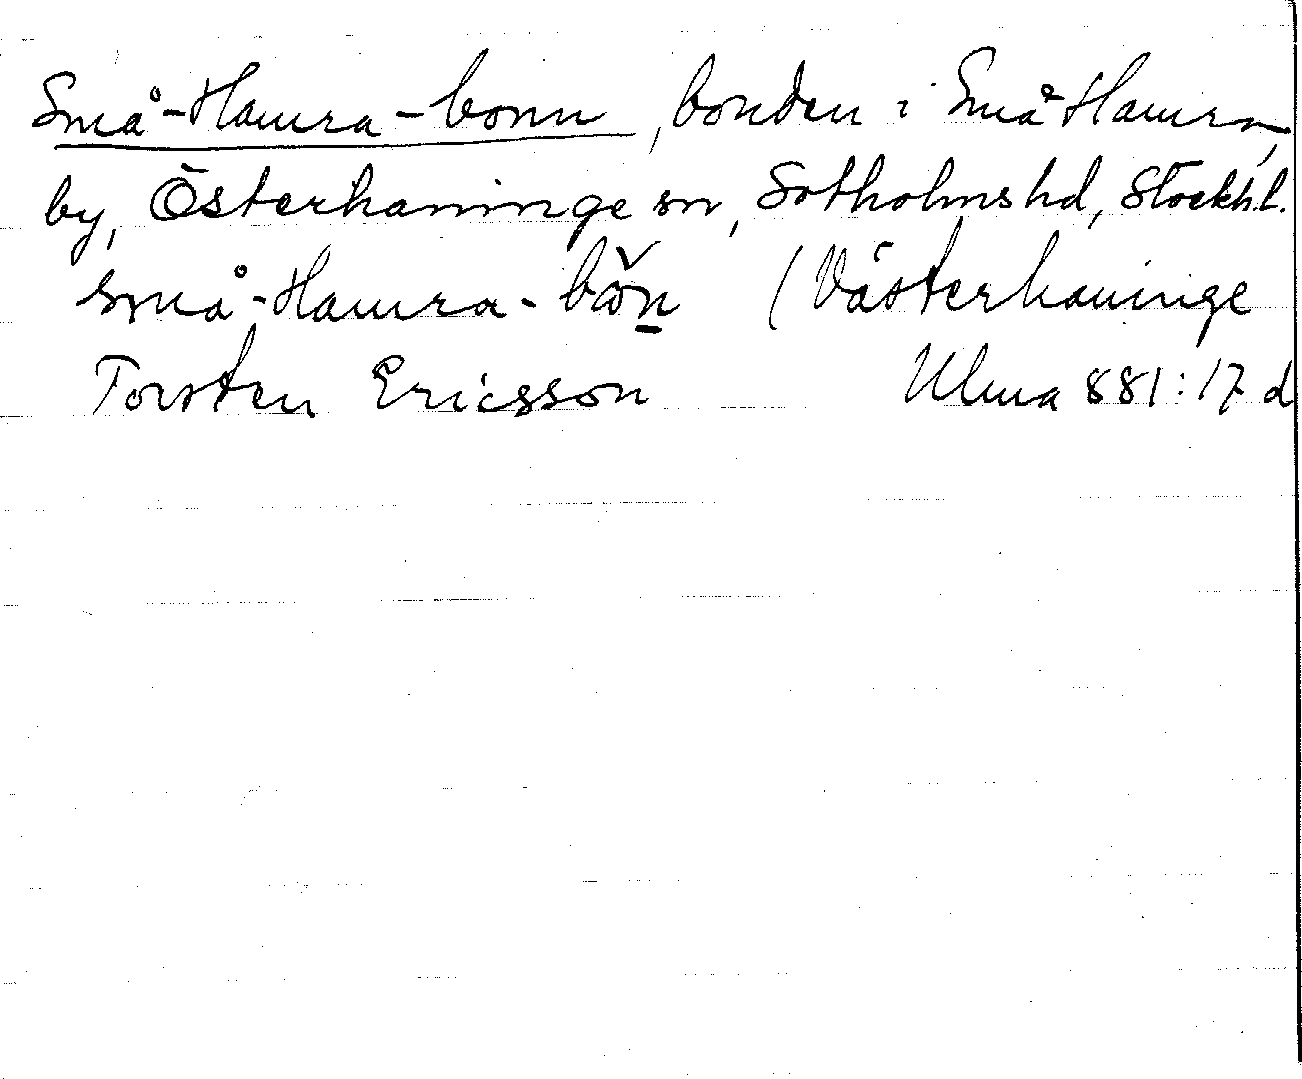 Små-Hamra-bonn, bonden i Små Hamra,
by, Österhaninge sn, Sotholms hd, Stockh.l.
små-Hamra-bǒn (Västerhaninge
Torsten Ericsson Ulma 881:17 d